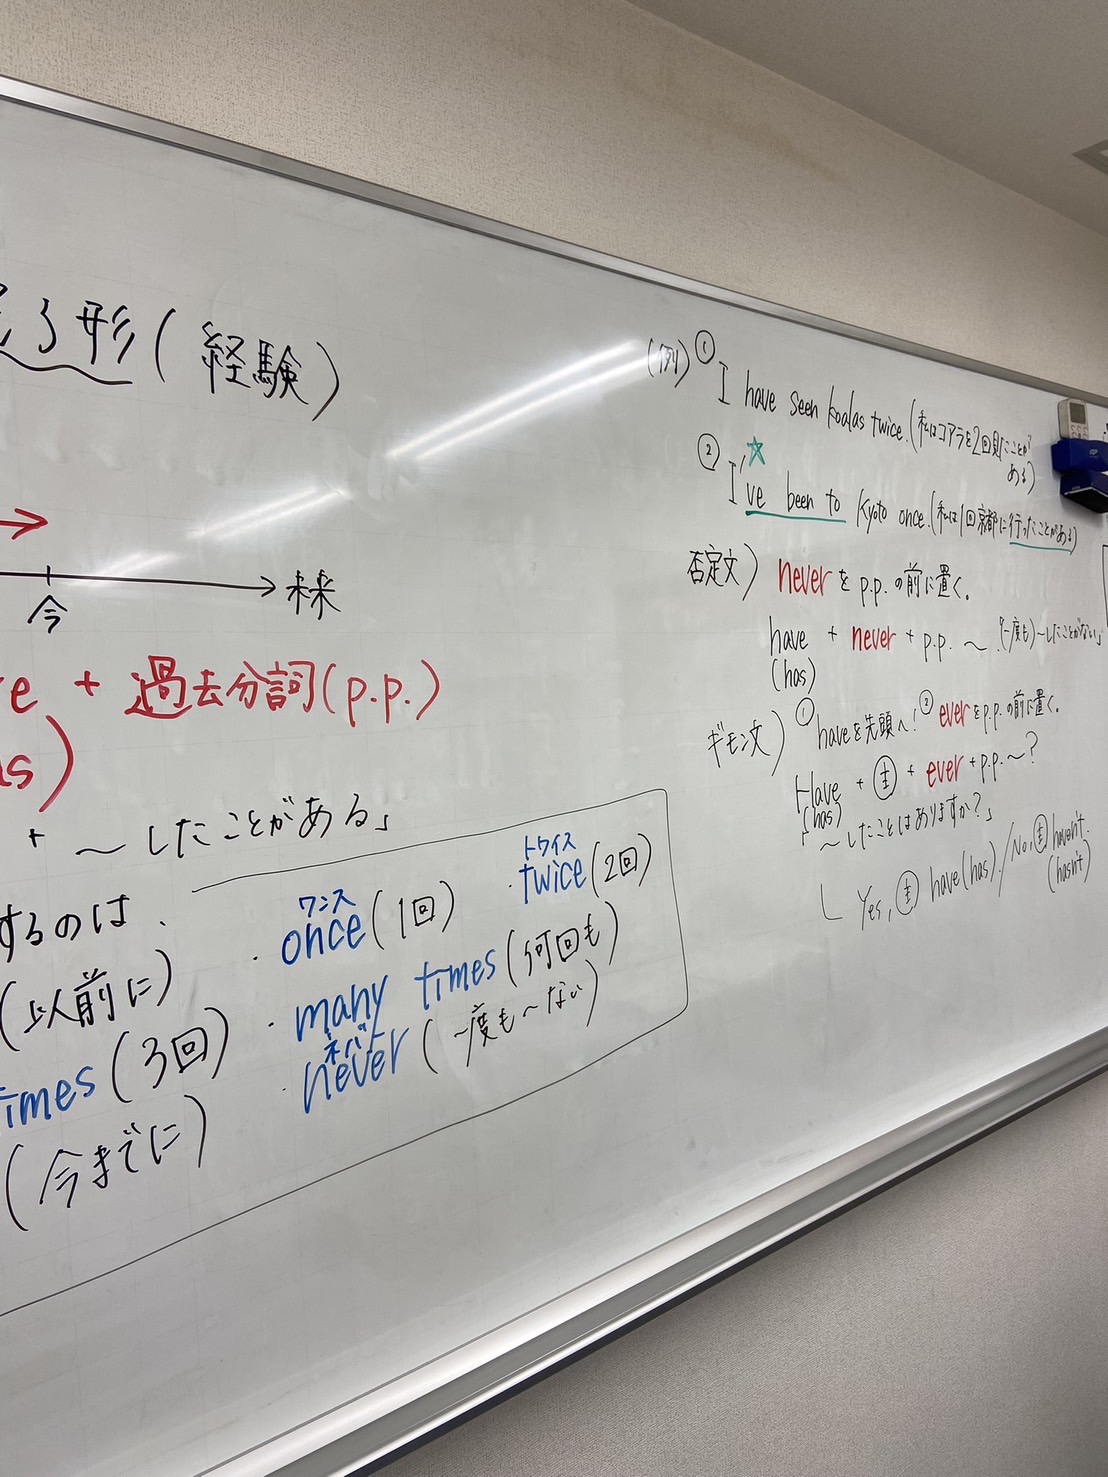 る形(経験)
今
未来
e + 過去分詞(p.p.)
as)
+ ~したことがある」
するのは、
ワンス
トワイス
・once(1回)
・twice(2回)
(以前に)
・many times(何回も)
imes(3回)
ネバー
・never(一度も~ない)
(今までに)
(例) ① I have seen koalas twice.(私はコアラを2回見たことが
ある)
② I've been to Kyoto once.(私は1回京都に行ったことがある)
否定文) neverをp.p.の前に置く。
have + never + p.p. ~.「(一度も)~したことがない」
(has)
ギモン文) ①haveを先頭へ! ②everをp.p.の前に置く。
Have + 主 + ever + p.p.~?
(has)
「~したことはありますか?」
Yes, 主 have(has). / No, 主 haven't.
(hasn't)